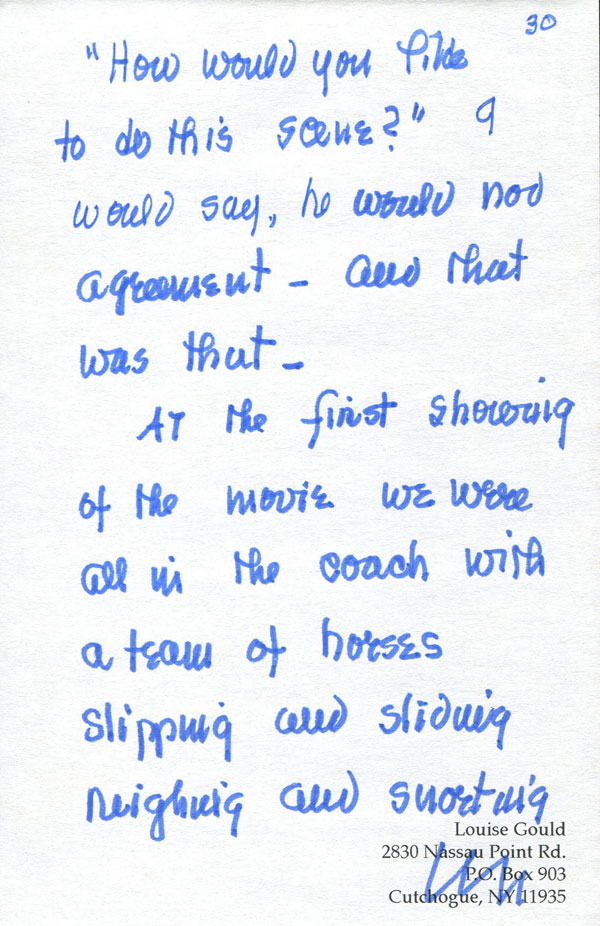 30
"How would you like
to do this scene?" I
would say, he would nod
agreement - and that
was that -
At the first showing
of the movie we were
all in the coach with
a team of horses
slipping and sliding
neighing and snorting
Louise Gould
2830 Nassau Point Rd.
P.O. Box 903
Cutchogue, NY 11935